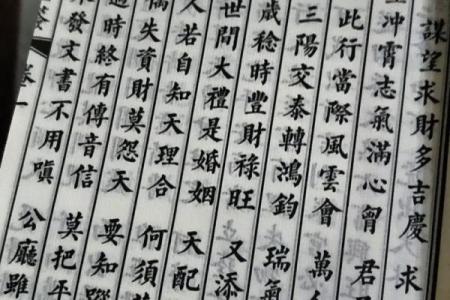 謀望求財多吉慶 求
冲霄志氣滿心胷 君
此行當際風雲會 萬人
三陽交泰轉鴻鈞 瑞氣
歲稔時豐財祿旺 又添
世間大禮是婚姻 天配
人若自知天理合 何須
偶失資財莫怨天 要知
過時終有傳音信 莫把平
發文書不用嗔 公廳雖
卷一